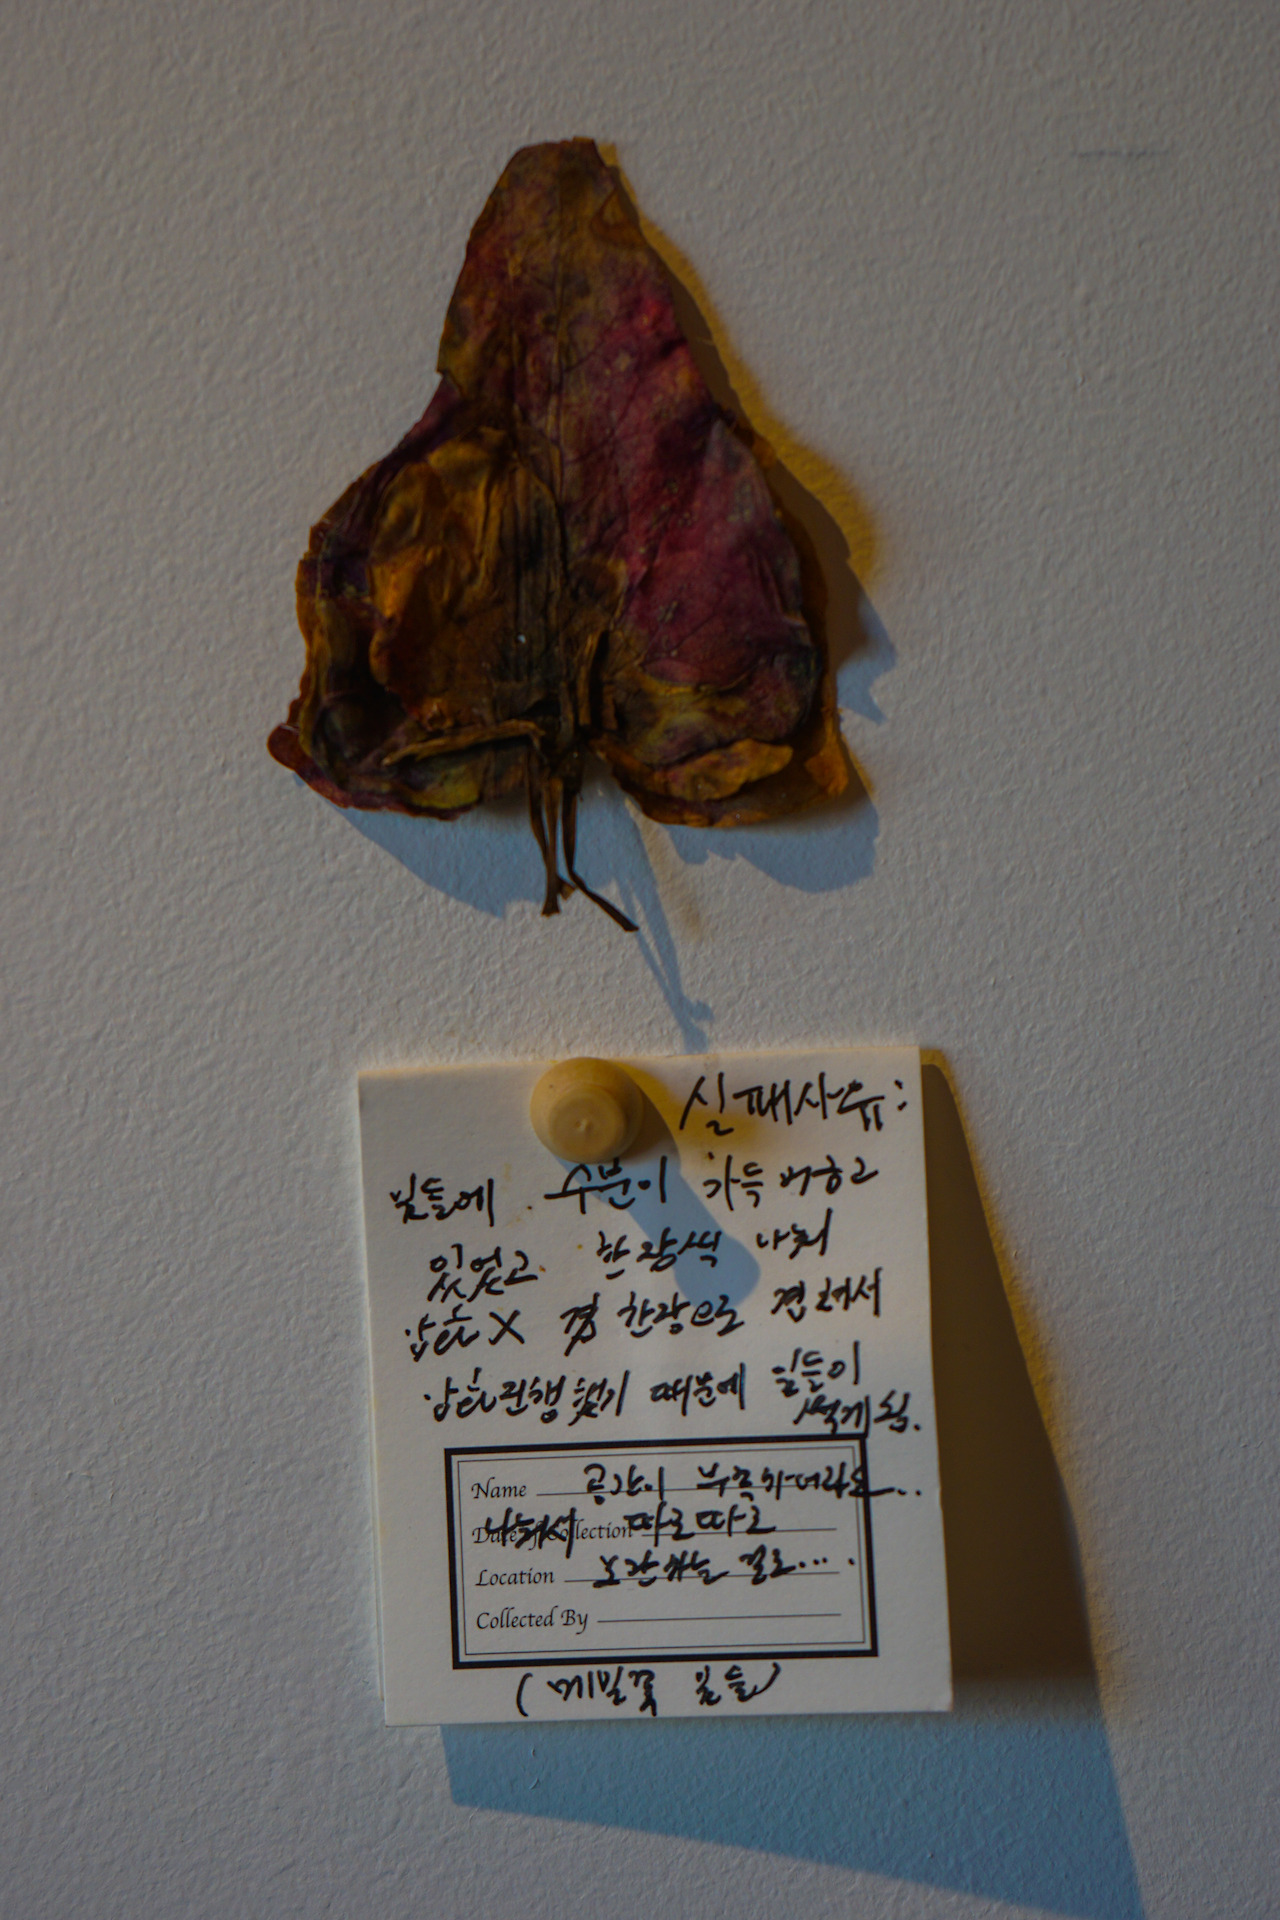 실패사유:
잎들에 수분이 가득 머금고
있었고 한장씩 나눠
압화X 겹 한장으로 겹쳐서
압화진행했기 때문에 잎들이
썩게 됨.
Name 공간이 부족하더라도..
Date of Collection 나눠서 따로따로
Location 보관하는 걸로....
Collected By
(메밀꽃 잎들)